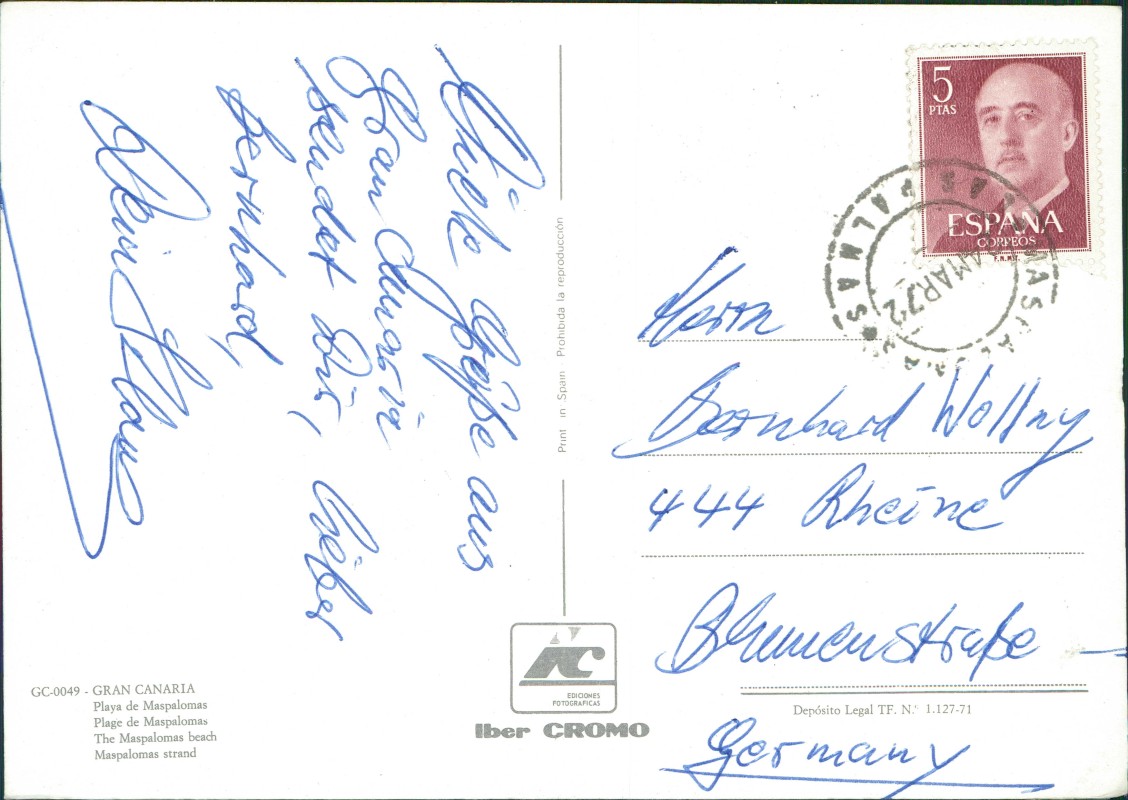 Liebe Grüße aus
Gran Canaria
sendet Dir, lieber
Bernhard,
Dein Klaus
GC-0049 - GRAN CANARIA
Playa de Maspalomas
Plage de Maspalomas
The Maspalomas beach
Maspalomas strand
Print in Spain Prohibida la reproducción
EDICIONES
FOTOGRAFICAS
Iber CROMO
5
PTAS
ESPAÑA
CORREOS
F.N.M.T.
MAR 72
PALMAS
Herrn
Bernhard Wollny
444 Rheine
Blumenstraße
Germany
Depósito Legal TF. N.º 1.127-71